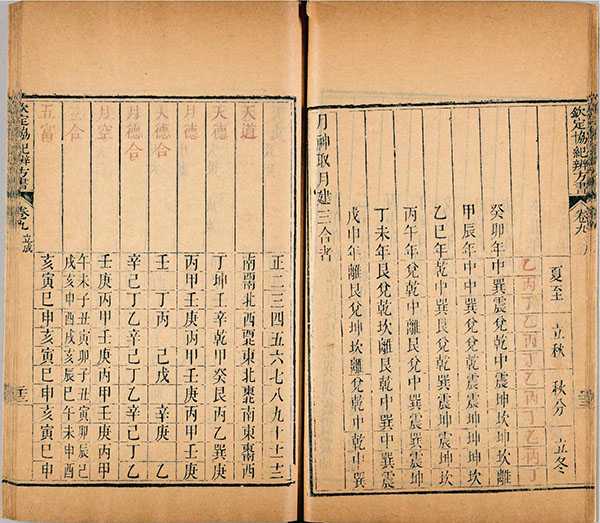 欽定協紀辨方書 卷九
夏至 立秋 秋分 立冬
乙丙丁乙丙丁乙丙丁乙丙丁
癸卯年中巽震乾中中坤坎離坤坎離
甲辰年中中巽兌乾中震坤坎震坤坎
乙巳年乾中中艮兌乾巽震坤巽震坤
丙午年兌乾中離艮兌中巽震中巽震
丁未年艮兌乾坎離艮乾中巽乾中巽
戊申年離艮兌坤坎離兌乾中兌乾中
月神取月建三合者
正二三四五六七八九十十一十二
天道 南西南北西西北東北東北南東東南西
天德 丁坤壬辛乾甲癸艮丙乙巽庚
月德 丙甲壬庚丙甲壬庚丙甲壬庚
天德合 壬 丁丙 己戊 辛庚
月德合 辛己丁乙辛己丁乙辛己丁乙
月空 壬庚丙甲壬庚丙甲壬庚丙甲
三合 午未子丑寅卯子丑寅卯辰巳
戌亥申酉戌亥辰巳午未申酉
五富 亥寅巳申亥寅巳申亥寅巳申
欽定協紀辨方書 卷九 立成